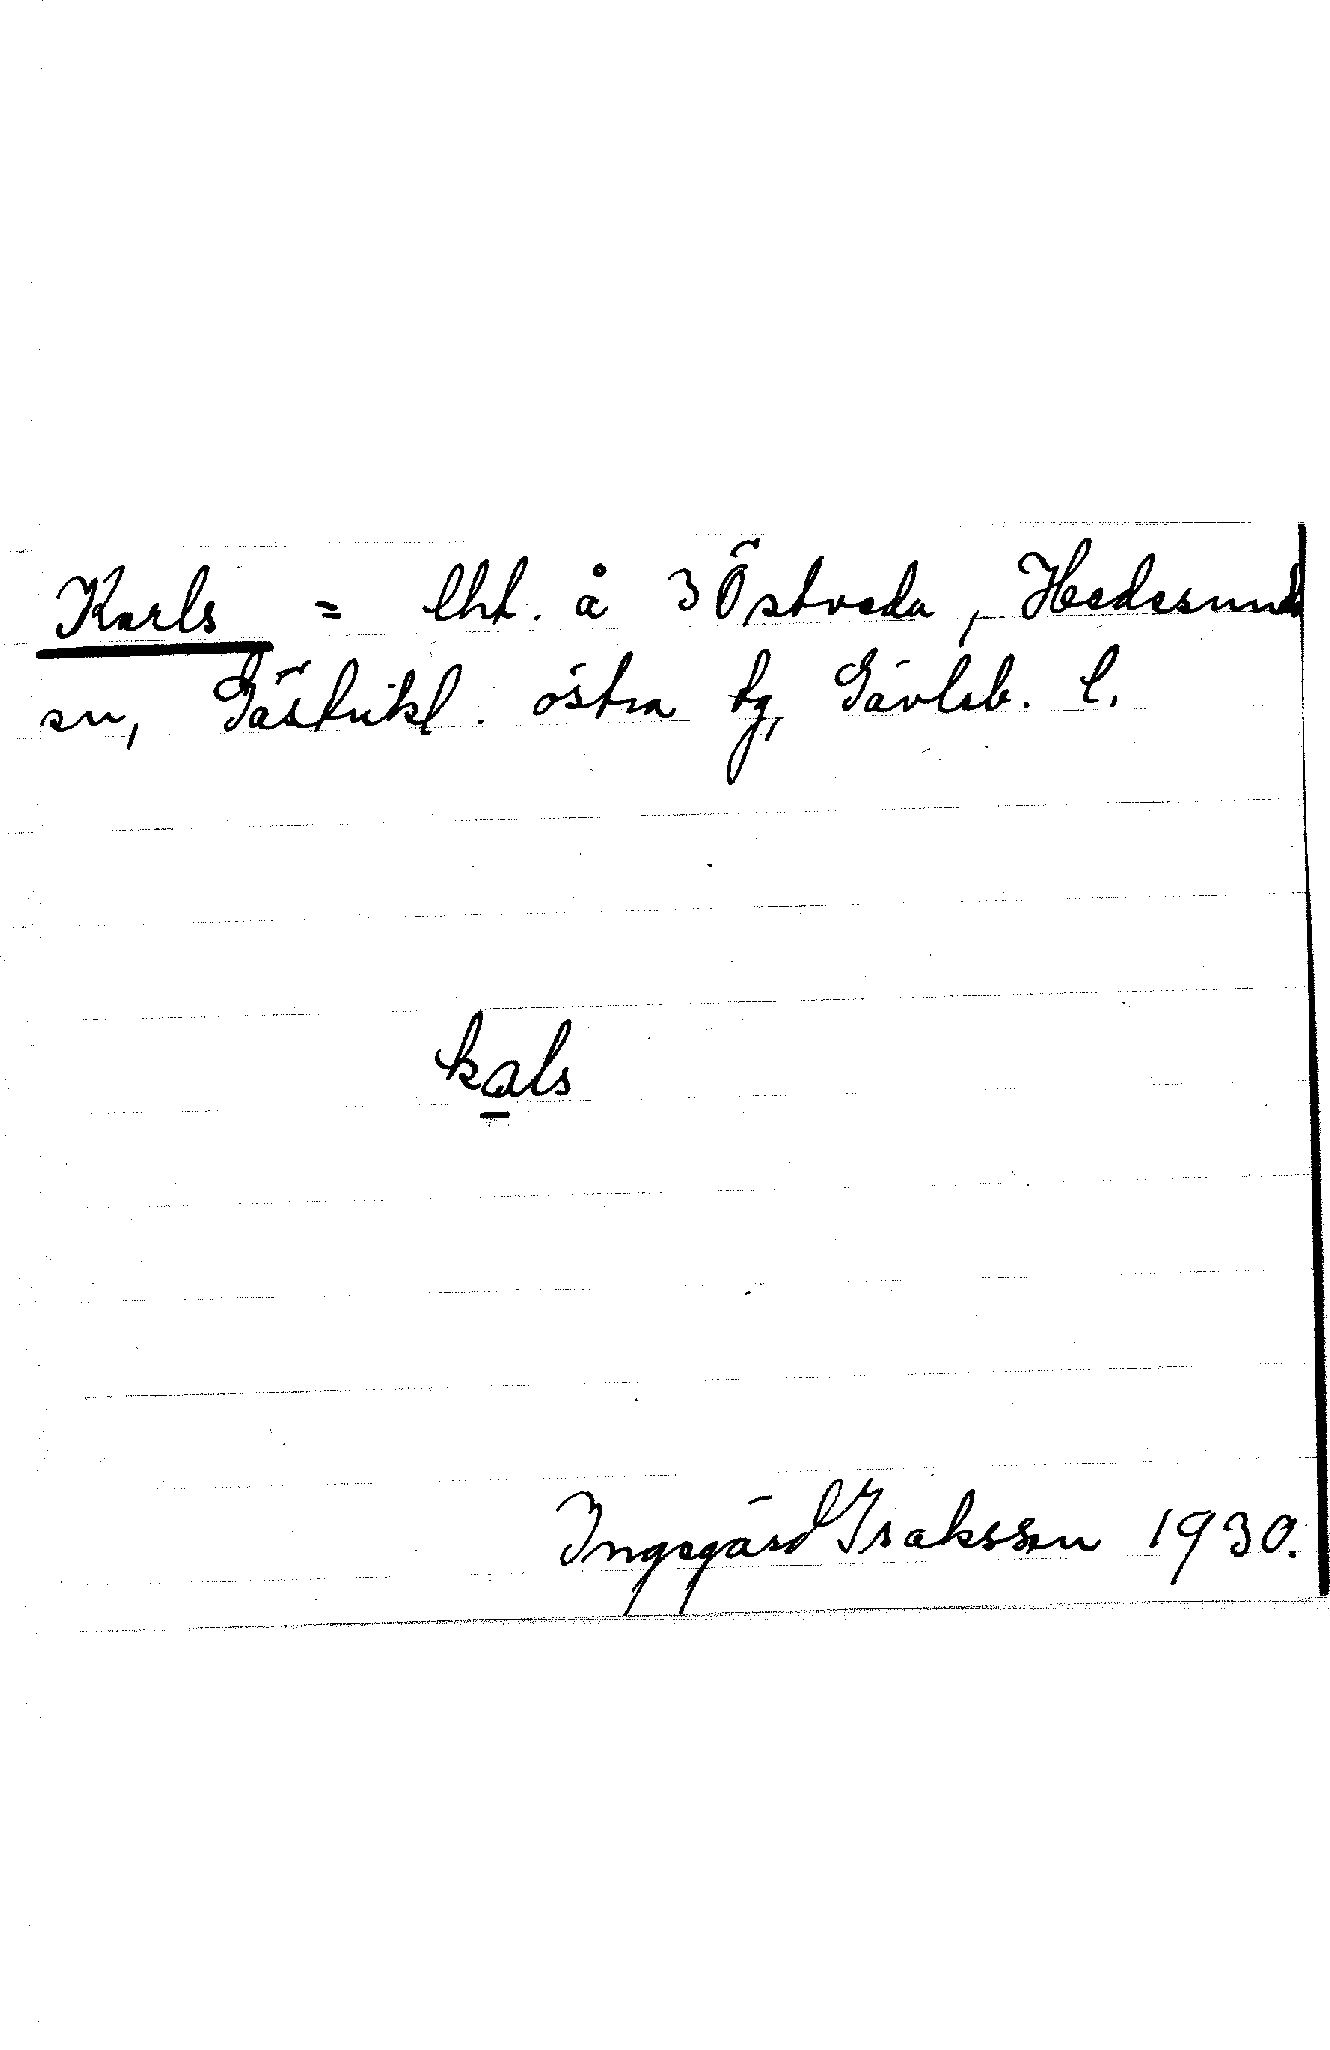 Karls = lht. å 3 Östveda, Hedesunda
sn, Gästrikl. östra tg, Gävleb. l.
kals
Ingegärd Isaksson 1930.